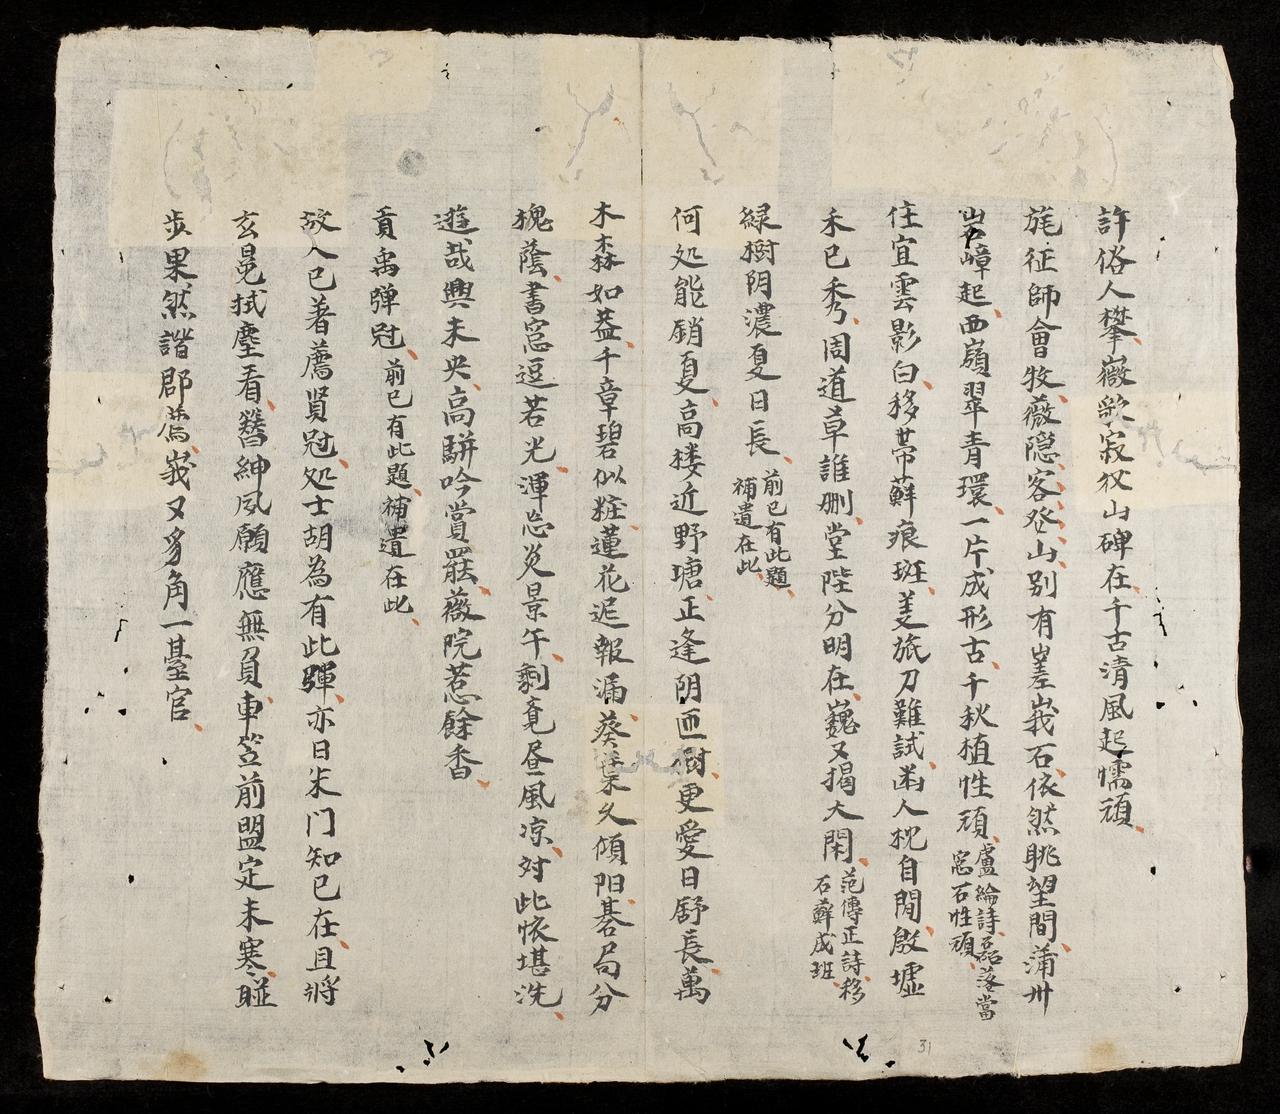 許俗人攀巖歌寂寂山碑在千古清風起懦頑
旄征師會牧薇隱客登山別有嵳峩石依然眺望間蒲州
岩嶂起西嶺翠青環一片成形古千秋植性頑
盧綸詩磊落當
窓石性頑
住宜雲影白移帶蘚痕斑羗旅刀難試幽人枕自閒殷墟
禾已秀周道草誰刪堂陛分明在巍又揭大閑
范傳正詩移
石蘚成班
緑樹阴濃夏日長
前已有此題
補遺在此
何処能銷夏高楼近野塘正逢阴匝樹更愛日舒長萬
木森如葢千章碧似粧蓮花迟報漏葵葉久傾阳碁局分
槐蔭書窓逗若光渾忘炎景午剩覓昼風凉対此懐堪洗
遊哉興未央高駢吟賞罷薇院惹餘香
貢禹彈冠
前已有此題補遺在此
故人已著薦賢冠処士胡為有此彈亦日朱门知已在且將
玄冕拭塵看簪紳夙願應無負車笠前盟定未寒眭
步果然諧郡薦峩又豸角一臺官
31